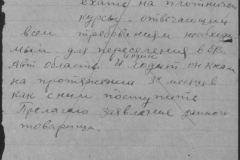 ехать на плотничн
курсы - отвечающий
всем требованиям
мый для переселения в
область и ходит он к нам
на протяжении 3х месяцев
как с ним поступить
Прилагаю заявление данного
товарища